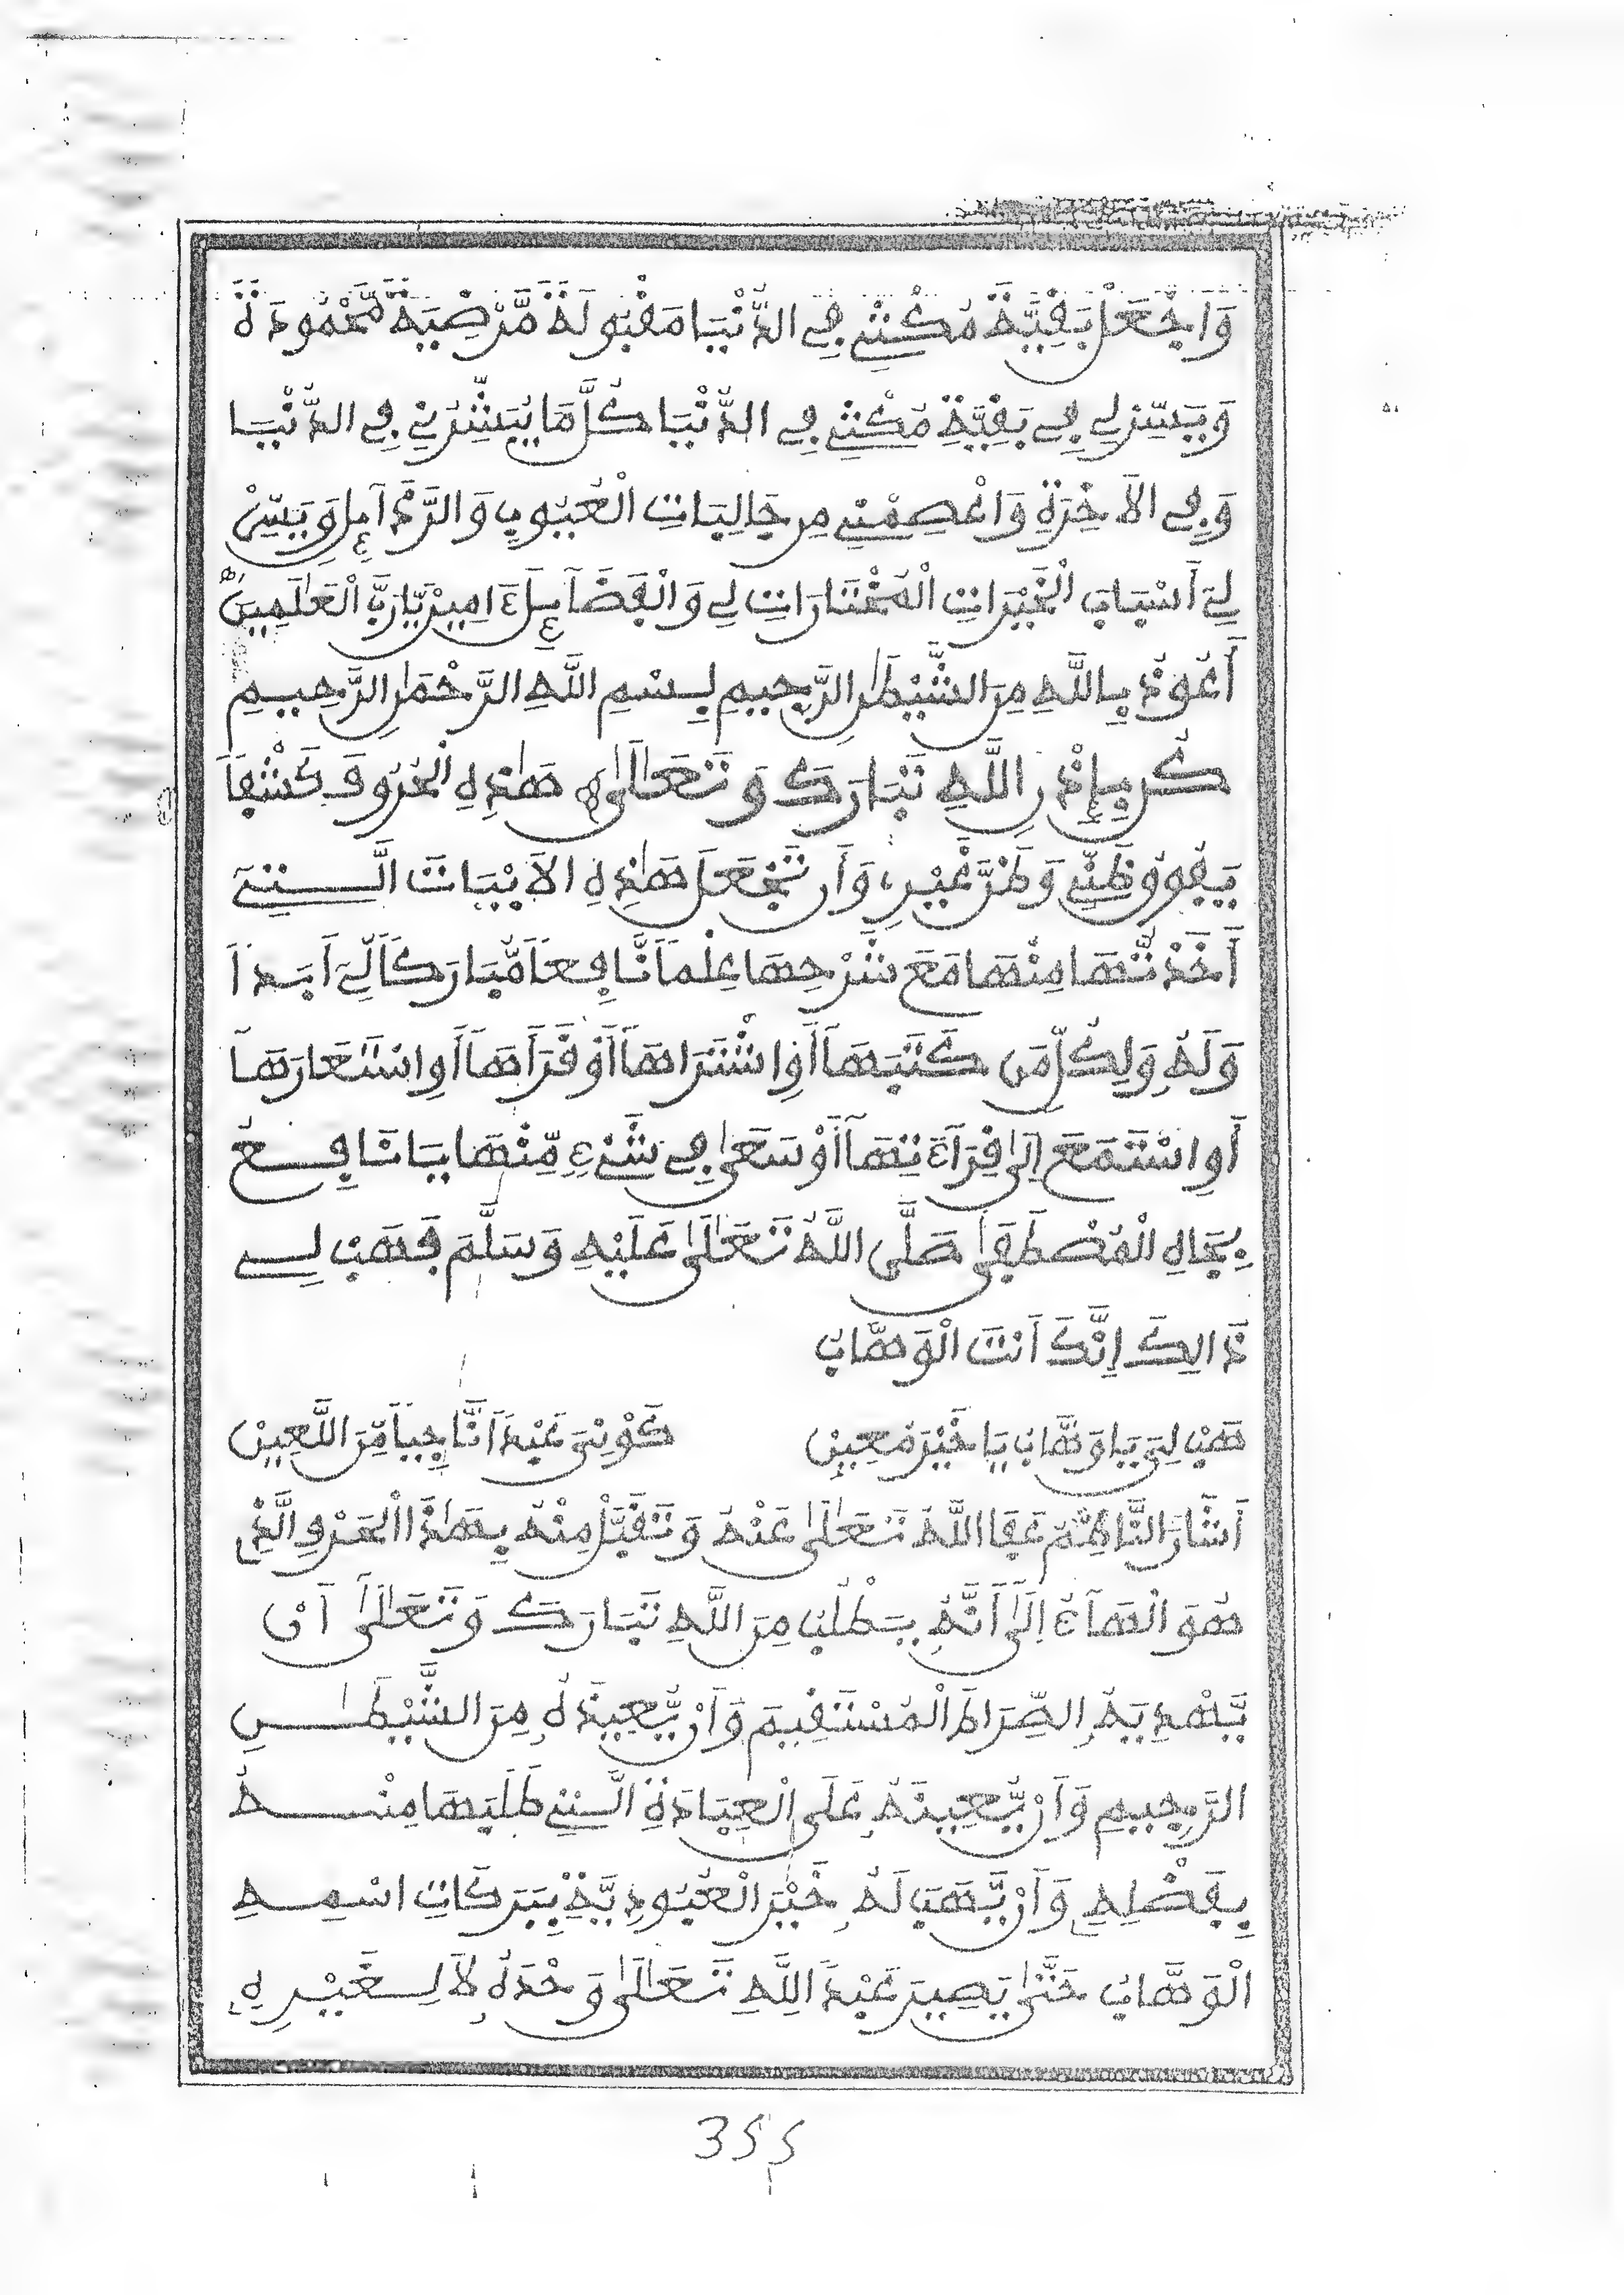 وَاجْعَلْ بَقِيَّةَ مُكْثِي فِي الدُّنْيَا مَقْبُولَةً مَّرْضِيَةً مَّحْمُودَةً
وَيَسِّرْ لِي فِي بَقِيَّةِ مُكْثِي فِي الدُّنْيَا كُلَّ مَا يُبَشِّرُنِي فِي الدُّنْيَا
وَفِي الَاخِرَةِ وَاعْصِمْنِي مِن جَالِبَاتِ الْعُيُوبِ وَالرَّذَآئِلِ وَيَسِّرْ
لِيَ أَسْبَابَ الْخَيْرَاتِ الْمُخْتَارَاتِ لِي وَالْفَضَآئِلَ ءَامِينَ يَّارَبَّ الْعَٰلَمِينَ
أَعُوذُ بِاللَّهِ مِنَ الشَّيْطَٰنِ الرَّجِيمِ بِسْمِ اللَّهِ الرَّحْمَٰنِ الرَّحِيمِ
كُن بِإِذْنِ اللَّهِ تَبَارَكَ وَتَعَالَىٰ هَٰذِهِ الْحُرُوفَ كَشْفاً
يَفُوقُ ظَنِّي وَظَنَّ غَيْرِي وَأَن تَجْعَلَ هَٰذِهِ الَابْيَاتَ الَّتِي
أَخَذْتُّهَا مِنْهَا مَعَ شَرْحِهَا عِلْماً نَّافِعاً مُّبَارَكاً لِّيَ أَبَداً
وَلَهُ وَلِكُلِّ مَن كَتَبَهَا أَوِ اشْتَرَاهَا أَوْ قَرَأَهَا أَوِ اسْتَعَارَهَا
أَوِ اسْتَمَعَ إِلَىٰ قِرَآءَتِهَا أَوْ سَعَىٰ فِي شَيْءٍ مِّنْهَا يَا نَافِعُ
بِجَاهِ الْمُصْطَفَىٰ صَلَّى اللَّهُ تَعَالَىٰ عَلَيْهِ وَسَلَّمَ فَهَبْ لِي
ذَالِكَ إِنَّكَ أَنْتَ الْوَهَّابُ
هَبْ لِيَ يَا وَهَّابُ يَا خَيْرَ مُعِينْ كَوْنِيَ عَبْداً نَّاجِياً مِّنَ اللَّعِينْ
أَشَارَ النَّاظِمُ عَفَا اللَّهُ تَعَالَىٰ عَنْهُ وَتَقَبَّلَ مِنْهُ بِهَٰذَا الْحَرْفِ الَّذِي
هُوَ الْهَآءُ إِلَىٰ أَنَّهُ يَطْلُبُ مِنَ اللَّهِ تَبَارَكَ وَتَعَالَىٰ أَن
يَّهْدِيَهُ الصِّرَاطَ الْمُسْتَقِيمَ وَأَن يُّعِيذَهُ مِنَ الشَّيْطَٰنِ
الرَّجِيمِ وَأَن يُّعِينَهُ عَلَى الْعِبَادَةِ الَّتِي طَلَبَهَا مِنْهُ
بِفَضْلِهِ وَأَن يَّهَبَ لَهُ خَيْرَ الْعُبُودِيَّةِ بِبَرَكَاتِ اسْمِهِ
الْوَهَّابُ حَتَّىٰ يَصِيرَ عَبْدَ اللَّهِ تَعَالَىٰ وَحْدَهُ لَا لِغَيْرِهِ
355